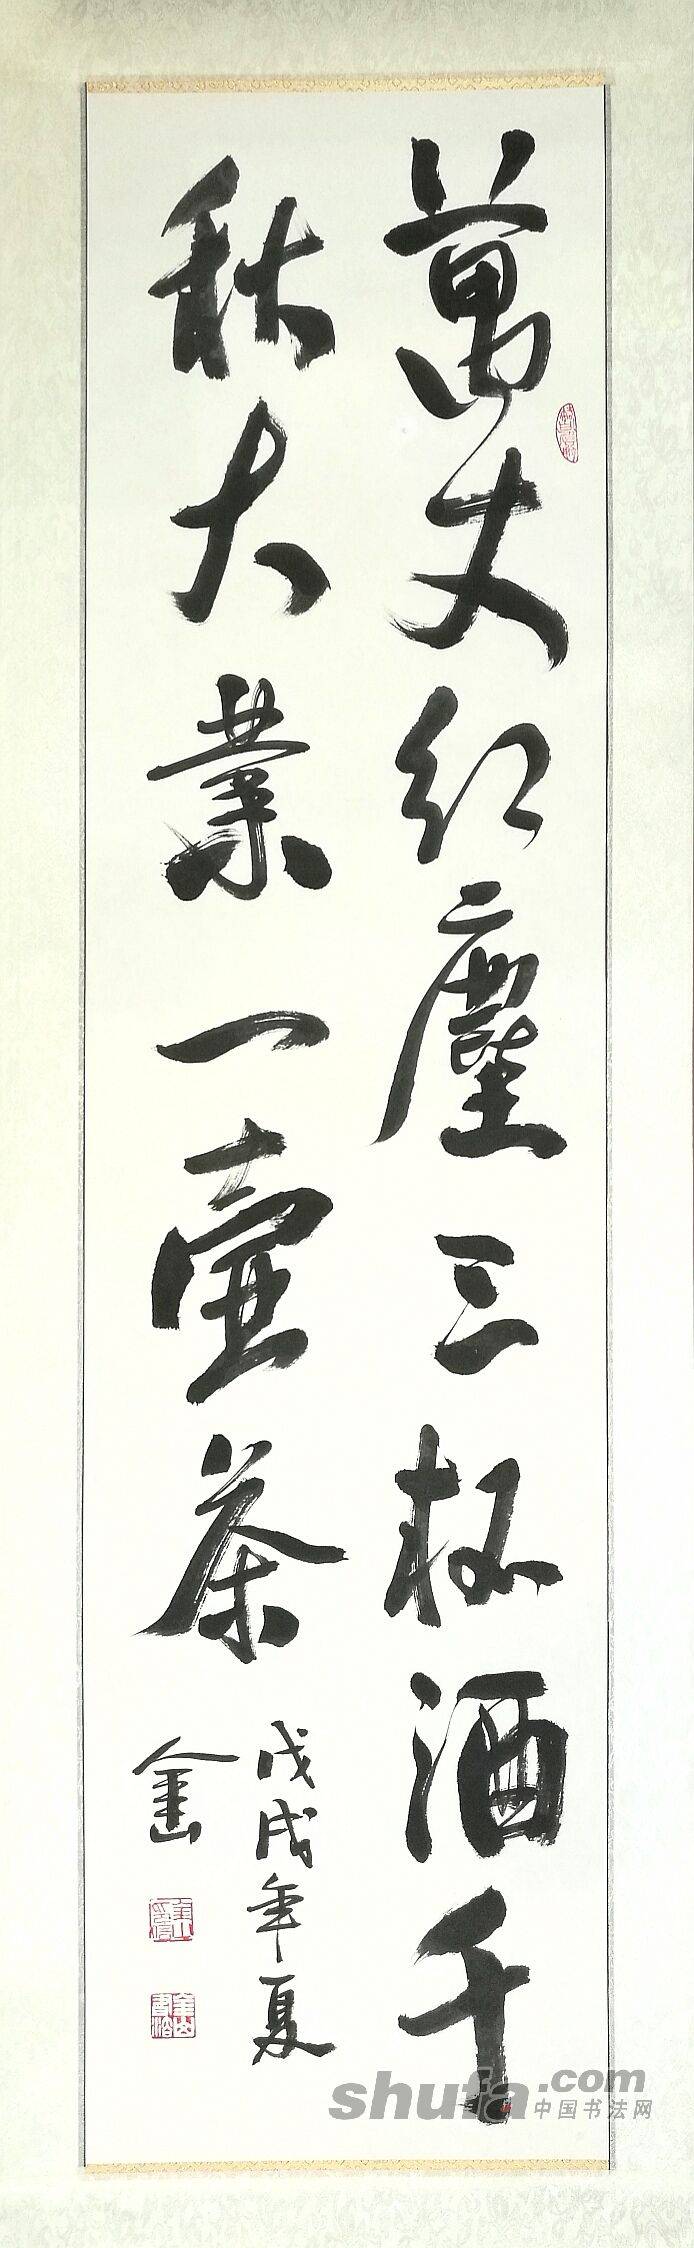 萬丈红塵三杯酒千
秋大業一壶茶
戊戌年夏
shufa.com
中国书法网